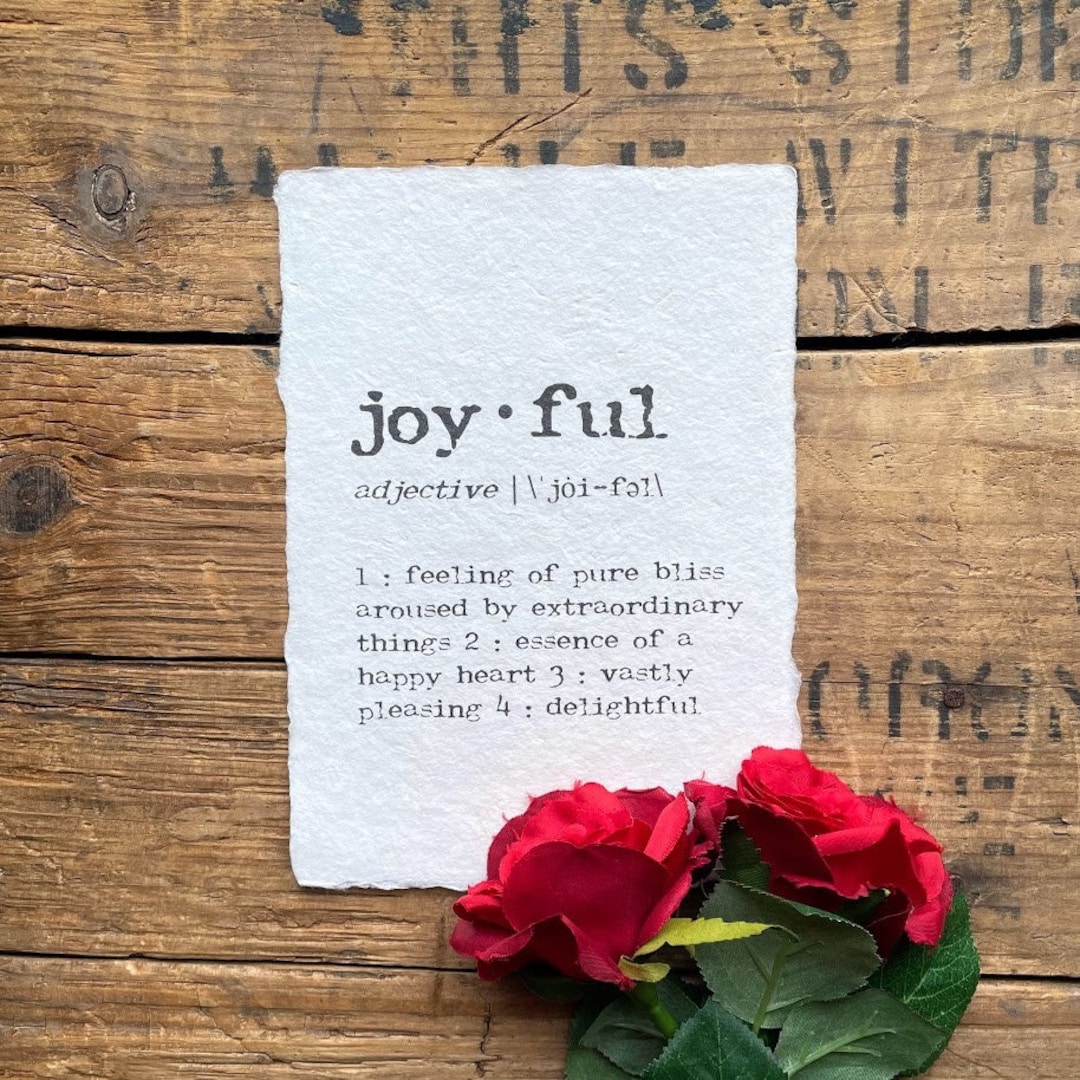 joy·ful
adjective | \ˈjȯi-fəl\
1 : feeling of pure bliss
aroused by extraordinary
things 2 : essence of a
happy heart 3 : vastly
pleasing 4 : delightful